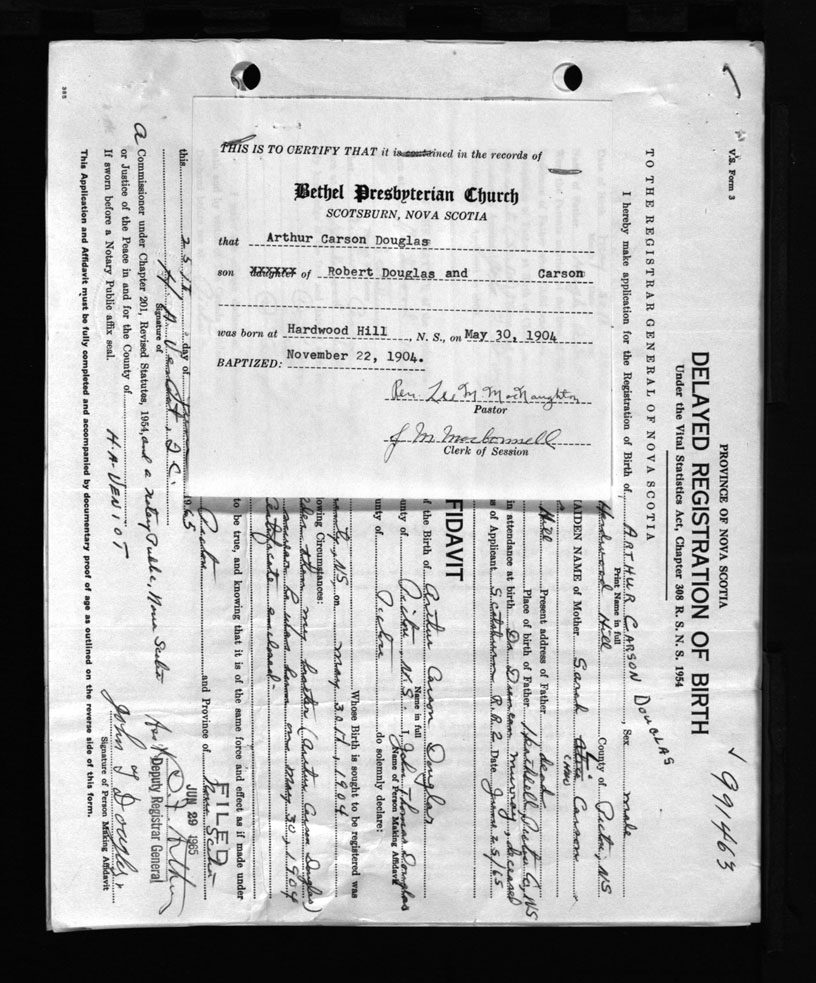 THIS IS TO CERTIFY THAT it is contained in the records of
Bethel Presbyterian Church
SCOTSBURN, NOVA SCOTIA
that Arthur Carson Douglas
son daughter of Robert Douglas and Carson
was born at Hardwood Hill, N. S., on May 30, 1904
BAPTIZED: November 22, 1904.
Rev. Lee M MacNaughton
Pastor
J. M. MacConnell
Clerk of Session
V.S. Form 3
PROVINCE OF NOVA SCOTIA
DELAYED REGISTRATION OF BIRTH
Under the Vital Statistics Act, Chapter 308 R. S. N. S. 1954
991463
TO THE REGISTRAR GENERAL OF NOVA SCOTIA
I hereby make application for the Registration of Birth of ARTHUR CARSON DOUGLAS, Sex male
Print Name in full
Hardwood Hill County of Pictou, NS
AIDEN NAME of Mother Sarah Carson
Hill Present address of Father dead
Place of birth of Father Heathbell Pictou Co, NS
in attendance at birth Dr Duncan Murray, deceased
s of Applicant Scotsburn R.R.2 Date June 25/65
FIDAVIT
f the Birth of Arthur Carson Douglas
Name in full
unty of Pictou, N.S. I, John Thomas Douglas
Name of Person Making Affidavit
unty of Pictou do solemnly declare:
Whose Birth is sought to be registered was
NS, on May 30th, 1904
lowing Circumstances:
my brother (Arthur Carson Douglas)
he was born on May 30, 1904
Certificate enclosed.
to be true, and knowing that it is of the same force and effect as if made under
Pictou and Province of Nova Scotia
FILED
JUN 29 1965
Deputy Registrar General
this 25th day of 1965
H. A. Veniot, J.C.
Signature of
A Commissioner under Chapter 201, Revised Statutes, 1954, and a Notary Public, Nova Scotia
or Justice of the Peace in and for the County of
H.A. VENIOT
If sworn before a Notary Public affix seal.
John T Douglas
Signature of Person Making Affidavit
This Application and Affidavit must be fully completed and accompanied by documentary proof of age as outlined on the reverse side of this form.
385